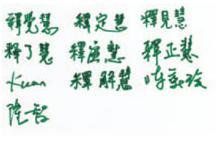 釋覺慧 釋定慧 釋見慧
釋了慧 釋慧 釋正慧
Kuan 釋解慧 陳
陳